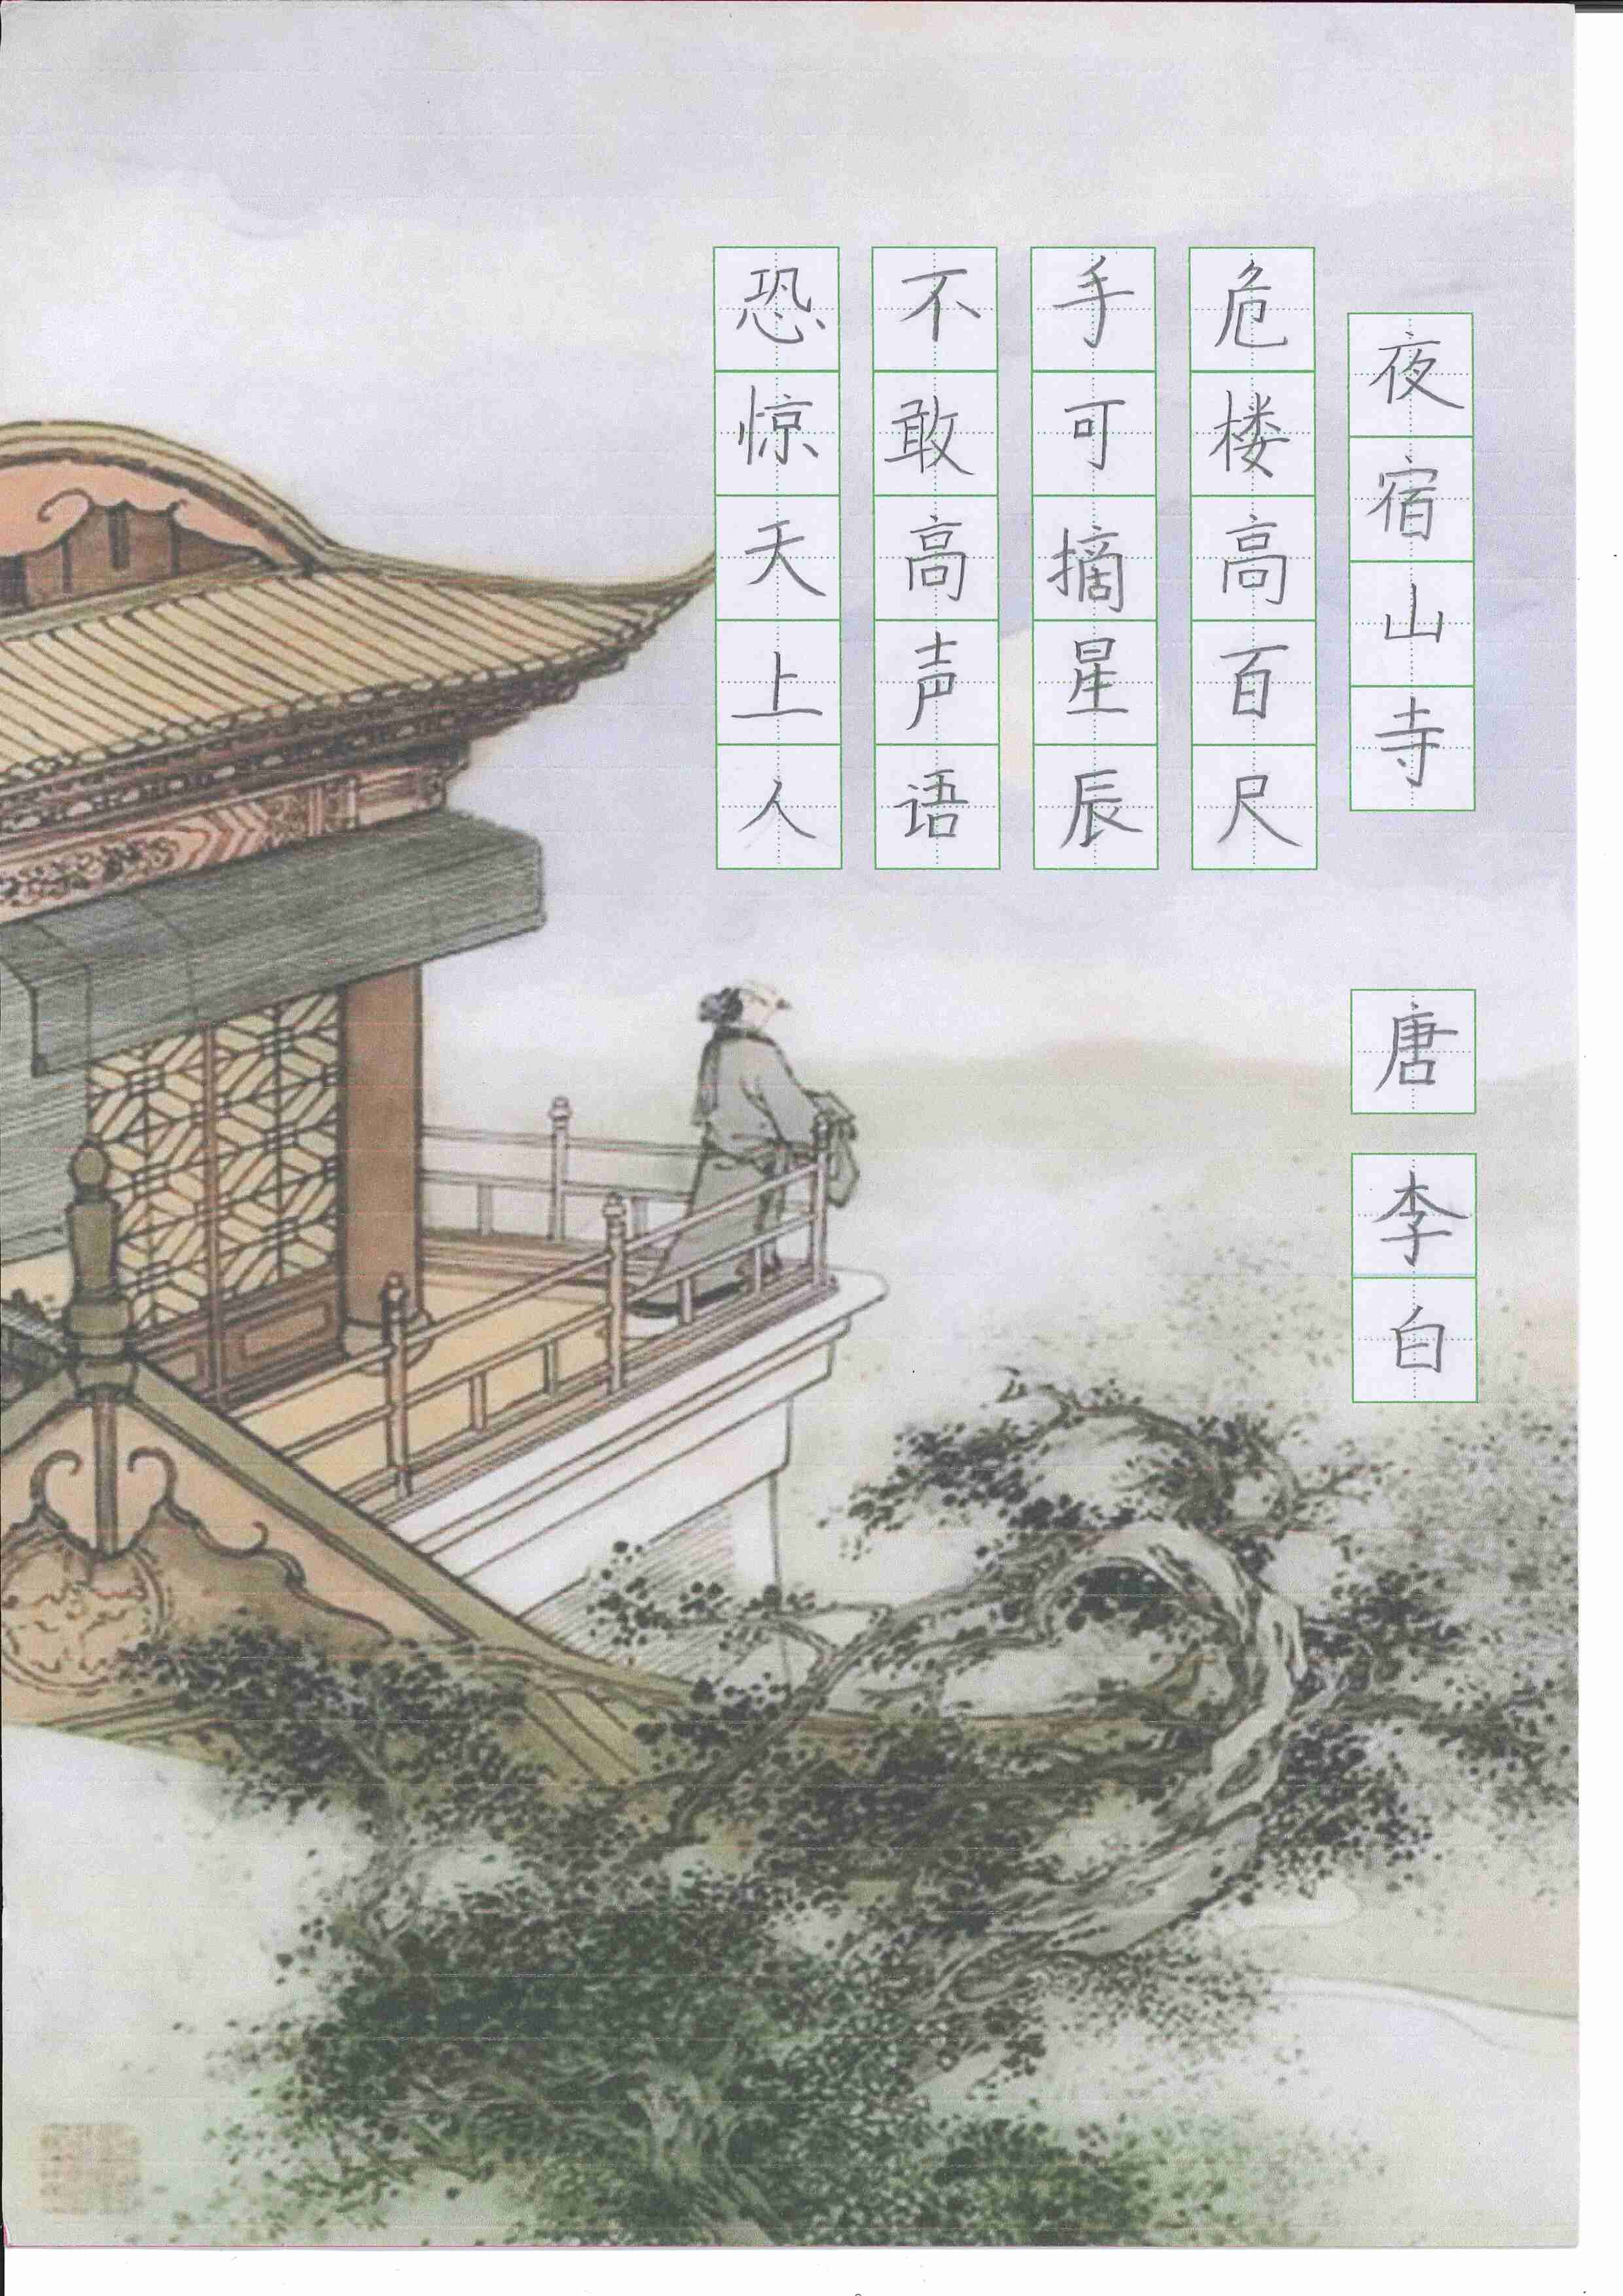 夜宿山寺
唐
李白
危楼高百尺
手可摘星辰
不敢高声语
恐惊天上人